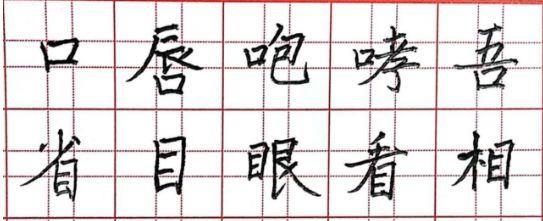 口唇咆哮吾
省目眼看相